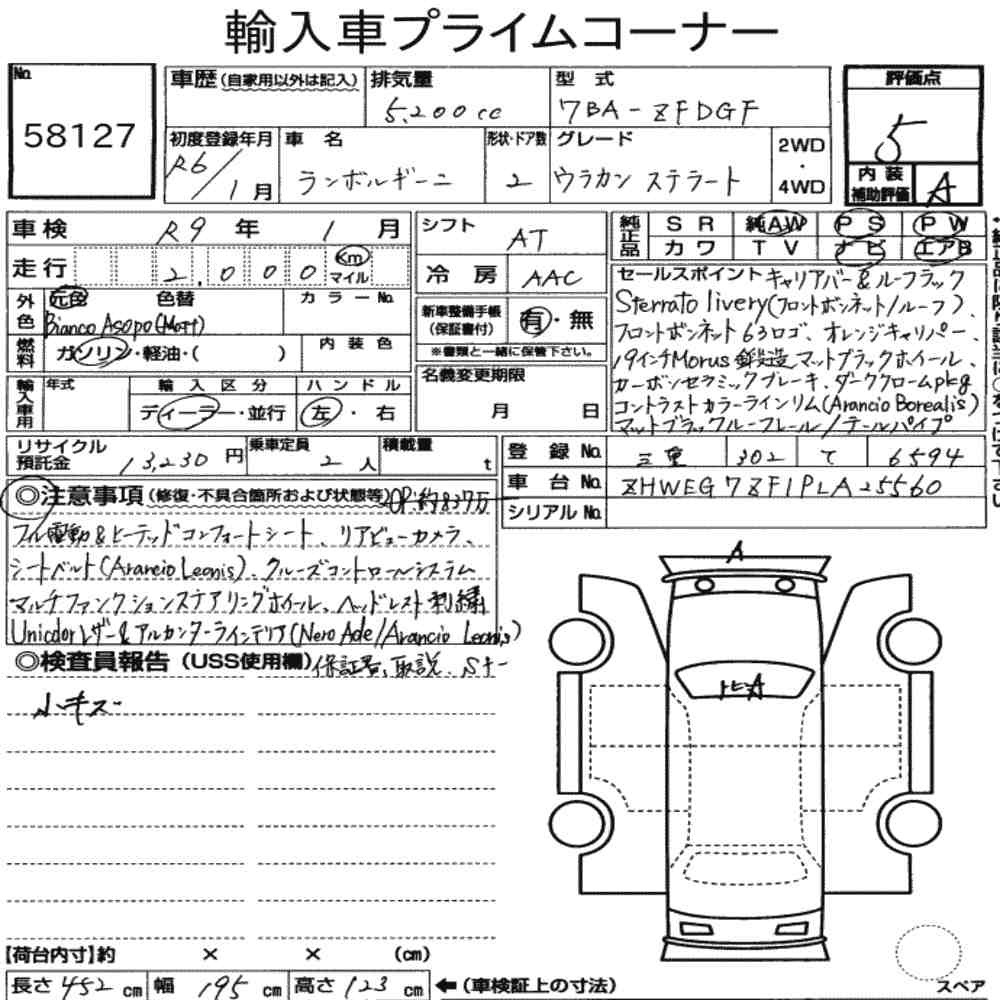 輸入車プライムコーナー
No. 58127
車歴(自家用以外は記入) 排気量 5,200cc 型式 7BA-ZFDGF
評価点 5
内装補助評価 A
初度登録年月 R6/1月 車名 ランボルギーニ 形状・ドア数 2 グレード ウラカン ステラート 2WD・4WD
車検 R9年 1月
走行 2,000 Km マイル
外色 元色 色替 カラーNo.
Bianco Asopo(Matt)
燃料 ガソリン・軽油・( ) 内装色
輸入車用 年式 輸入区分 ディーラー・並行 ハンドル 左・右
シフト AT
冷房 AAC
新車整備手帳(保証書付) 有・無
※書類と一緒に保管下さい。
名義変更期限 月 日
純正品 SR 純AW PS PW
カワ TV ナビ エアB
セールスポイント キャリアバー&ルーフラック
Sterrato livery(フロントボンネット/ルーフ)、
フロントボンネット63ロゴ、オレンジキャリパー、
19インチMorus鍛造マットブラックホイール、
カーボンセラミックブレーキ、ダーククロームpkg
コントラストカラーラインリム(Arancio Borealis)
マットブラックルーフレール/テールパイプ
リサイクル預託金 13,230円 乗車定員 2人 積載量 t
登録No. 三重 302 て 6594
車台No. ZHWEG7ZF1PLA25560
シリアルNo.
◎注意事項(修復・不具合箇所および状態等) OP:約837万
フル電動&ヒーテッドコンフォートシート、リアビューカメラ、
シートベルト(Arancio Leonis)、クルーズコントロールシステム
マルチファンクションステアリングホイール、ヘッドレスト刺繍
Unicolorレザー&アルカンターラインテリア(Nero Ade/Arancio Leonis)
◎検査員報告(USS使用欄) 保証書、取説、Sキー
小キズ
A
トビA
【荷台内寸】約 × × (cm)
長さ 452cm 幅 195cm 高さ 123cm ←(車検証上の寸法)
スペア